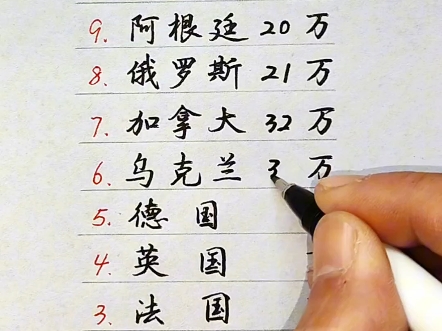 9. 阿根廷 20 万
8. 俄罗斯 21 万
7. 加拿大 32 万
6. 乌克兰 3 万
5. 德国
4. 英国
3. 法国